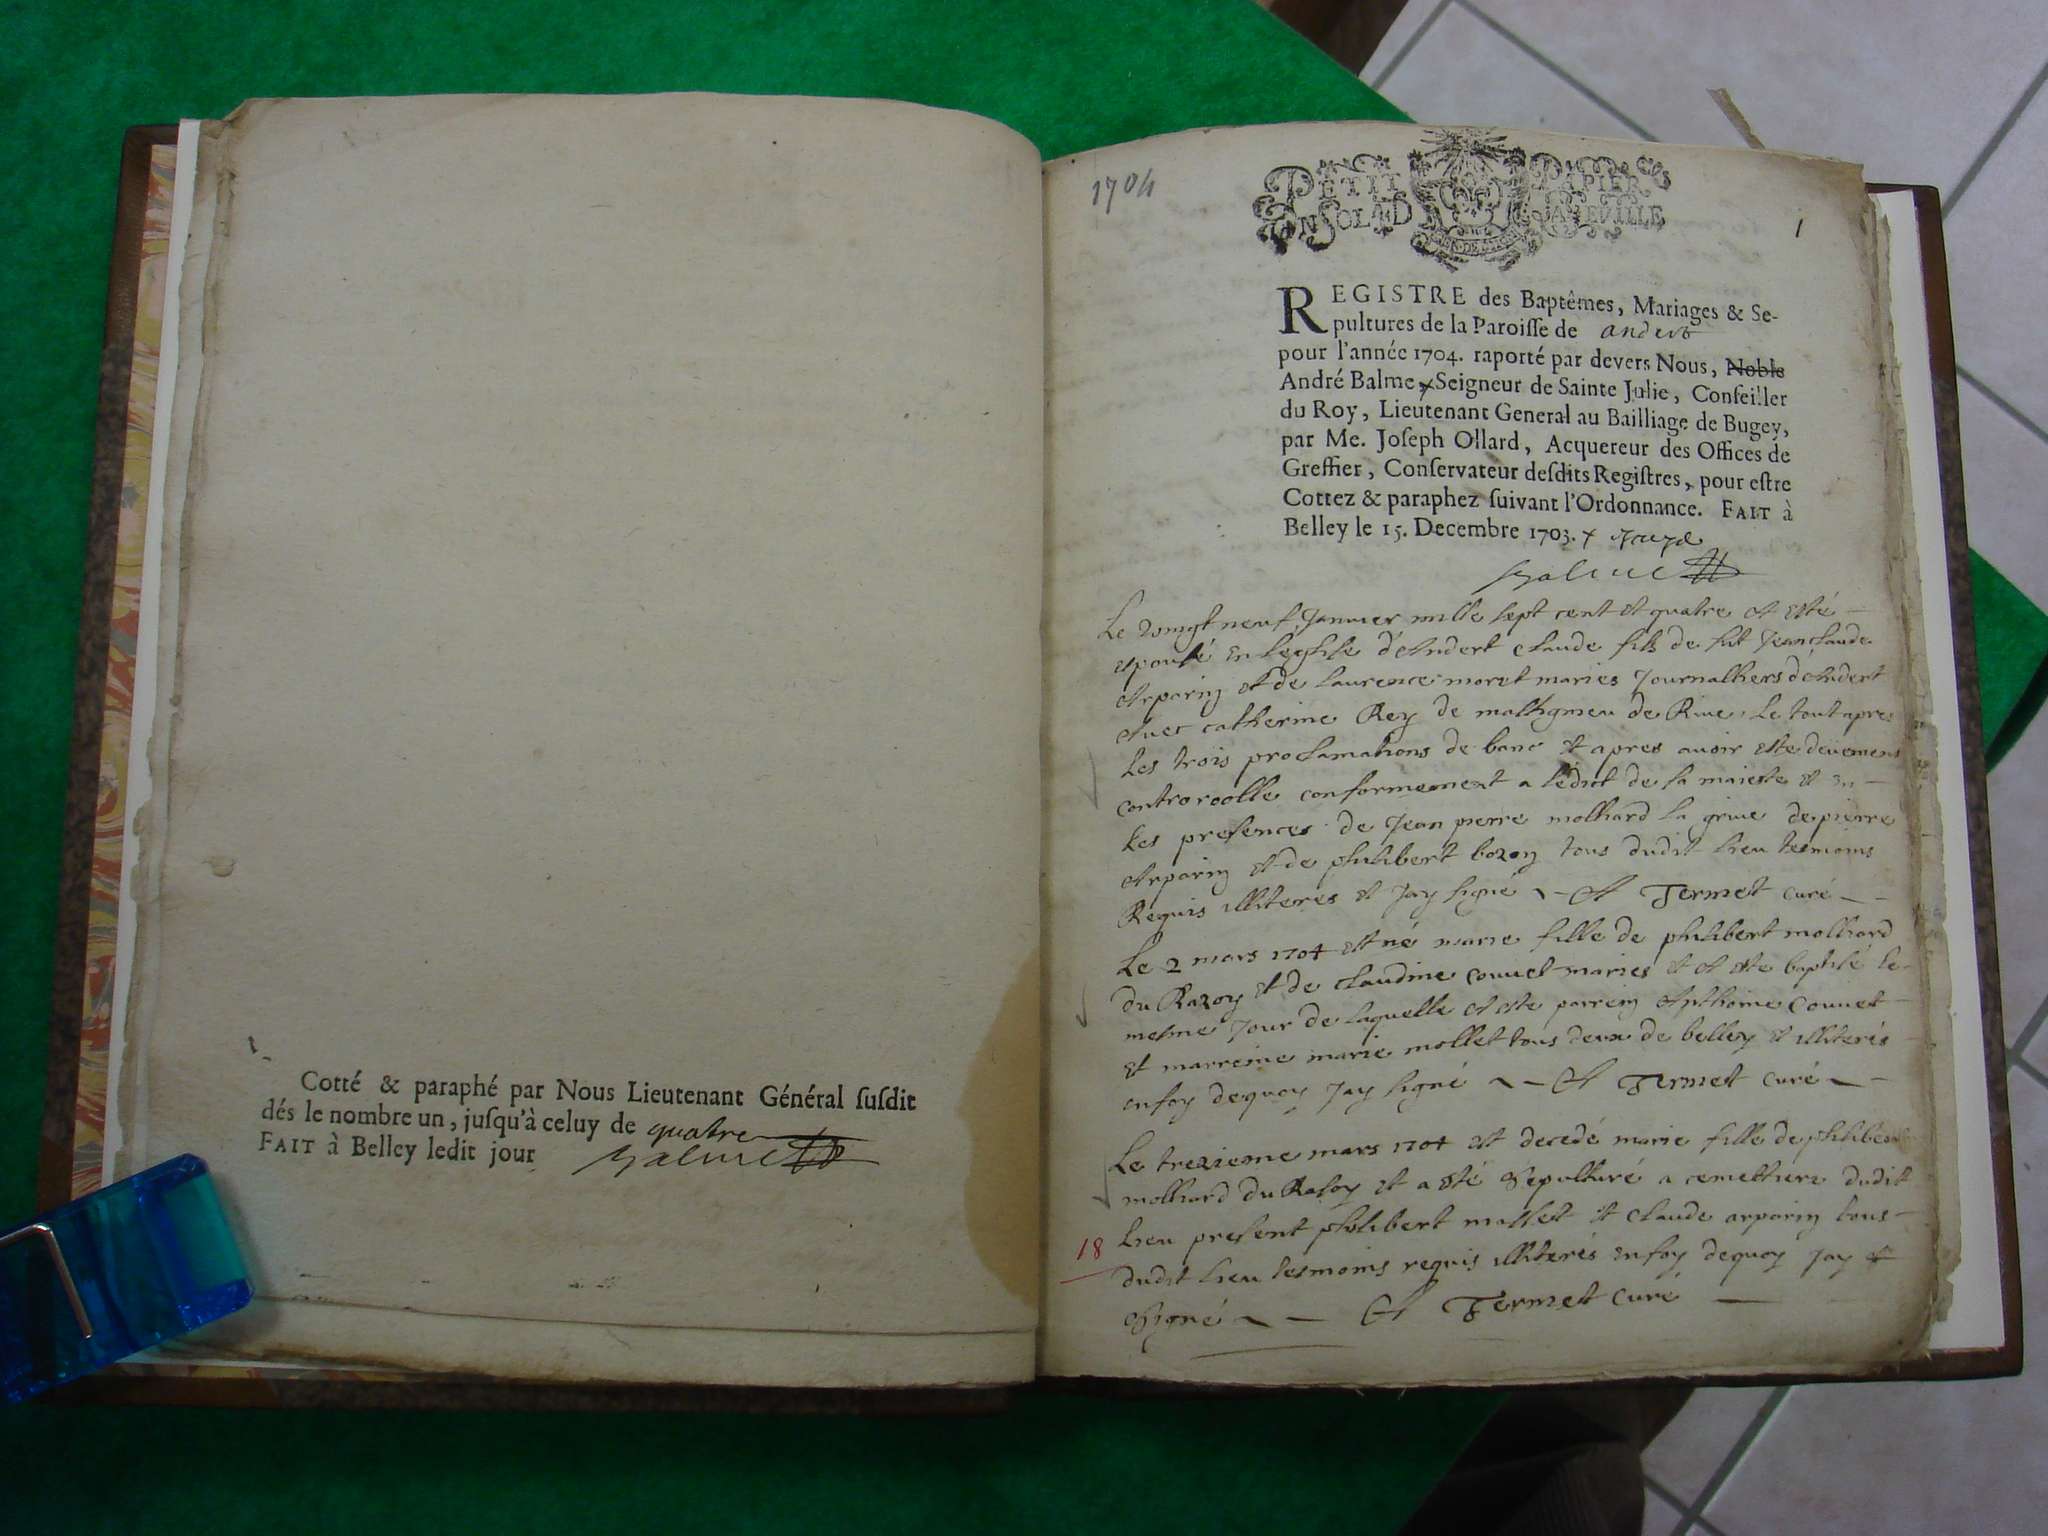 Cotté & paraphé par Nous Lieutenant Général susdit
dés le nombre un, jusqu'à celuy de quatre
FAIT à Belley ledit jour Balme
1704
PETIT PAPIER
1
REGISTRE des Baptêmes, Mariages & Se-
pultures de la Paroisse de andert
pour l'année 1704. raporté par devers Nous, Noble
André Balme, Seigneur de Sainte Julie, Conseiller
du Roy, Lieutenant General au Bailliage de Bugey,
par Me. Joseph Ollard, Acquereur des Offices de
Greffier, Conservateur desdits Registres, pour estre
Cottez & paraphez suivant l'Ordonnance. FAIT à
Belley le 15. Decembre 1703.
Balme
Le vingt neuf Janvier mille sept cent et quatre at esté
espousé en leglise d'Andert Claude fils de fut Jean Claude
Arparin et de laurence moret maries Journalhers dAndert
Avec catherine Rey de malhgnieu de Rive, le tout apres
les trois proclamations de banc et apres avoir este deuement
controroolle conformement a ledict de sa maieste et en
les presences de Jean pierre molliard la grive de pierre
Arparin et de philibert bozon tous dudit lieu tesmoins
Requis illiteres et Jay signé A Termet curé
Le 2 mars 1704 est né marie fille de philibert molliard
du Razoy et de claudine couvet maries et at este baptisé le
mesme Jour de laquelle at este parrein Anthoine Couvet
et marreine marie mollet tous deux de belley et illiterés
enfoy dequoy Jay signé A Termet Curé
Le trezieme mars 1704 est decedé marie fille de philibert
molliard du Rasoy et a esté Sepulturé a cemettiere dudit
lieu present philibert mollet et claude arparin tous
18
dudit lieu tesmoins requis illiterés enfoy dequoy Jay
Signé A Termet Curé